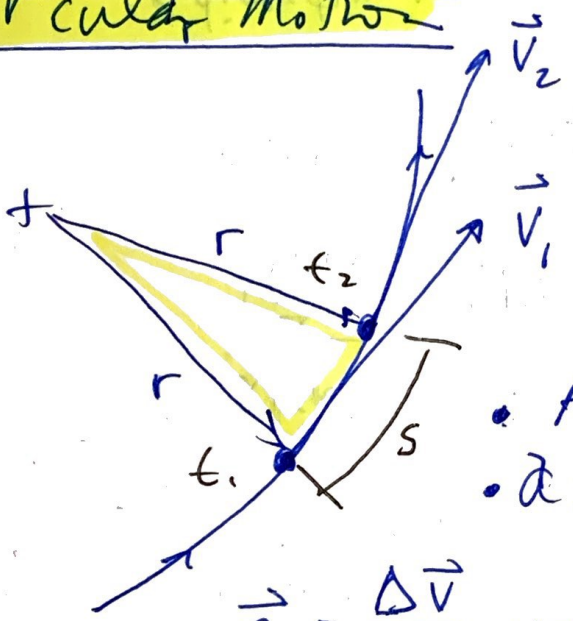 cular Motion
V⃗₂
V⃗₁
r
t₂
r
s
t₁
ΔV⃗